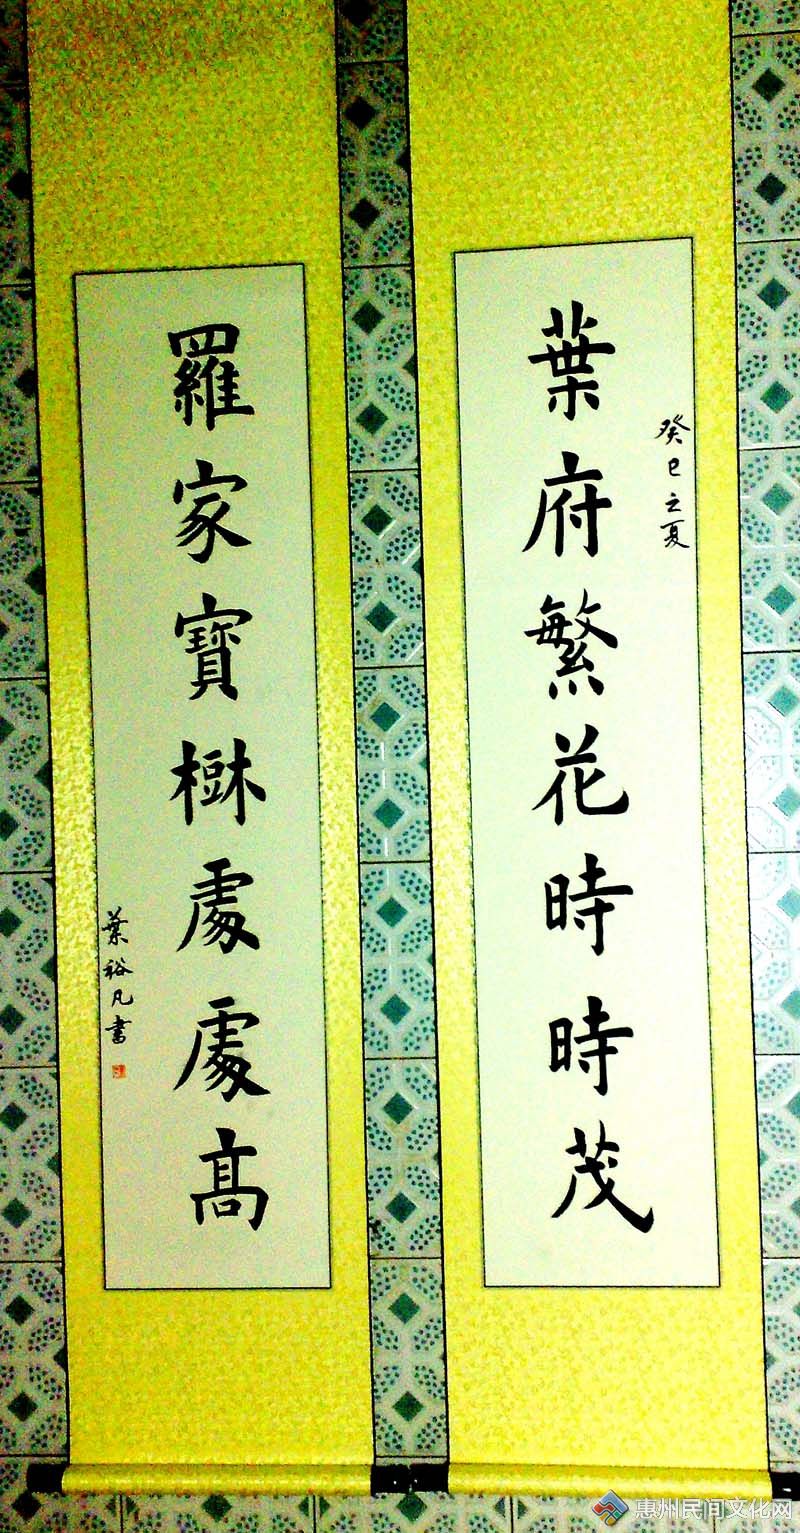 葉府繁花時時茂
癸巳之夏
羅家寶樹處處高
葉裕凡書
惠州民间文化网